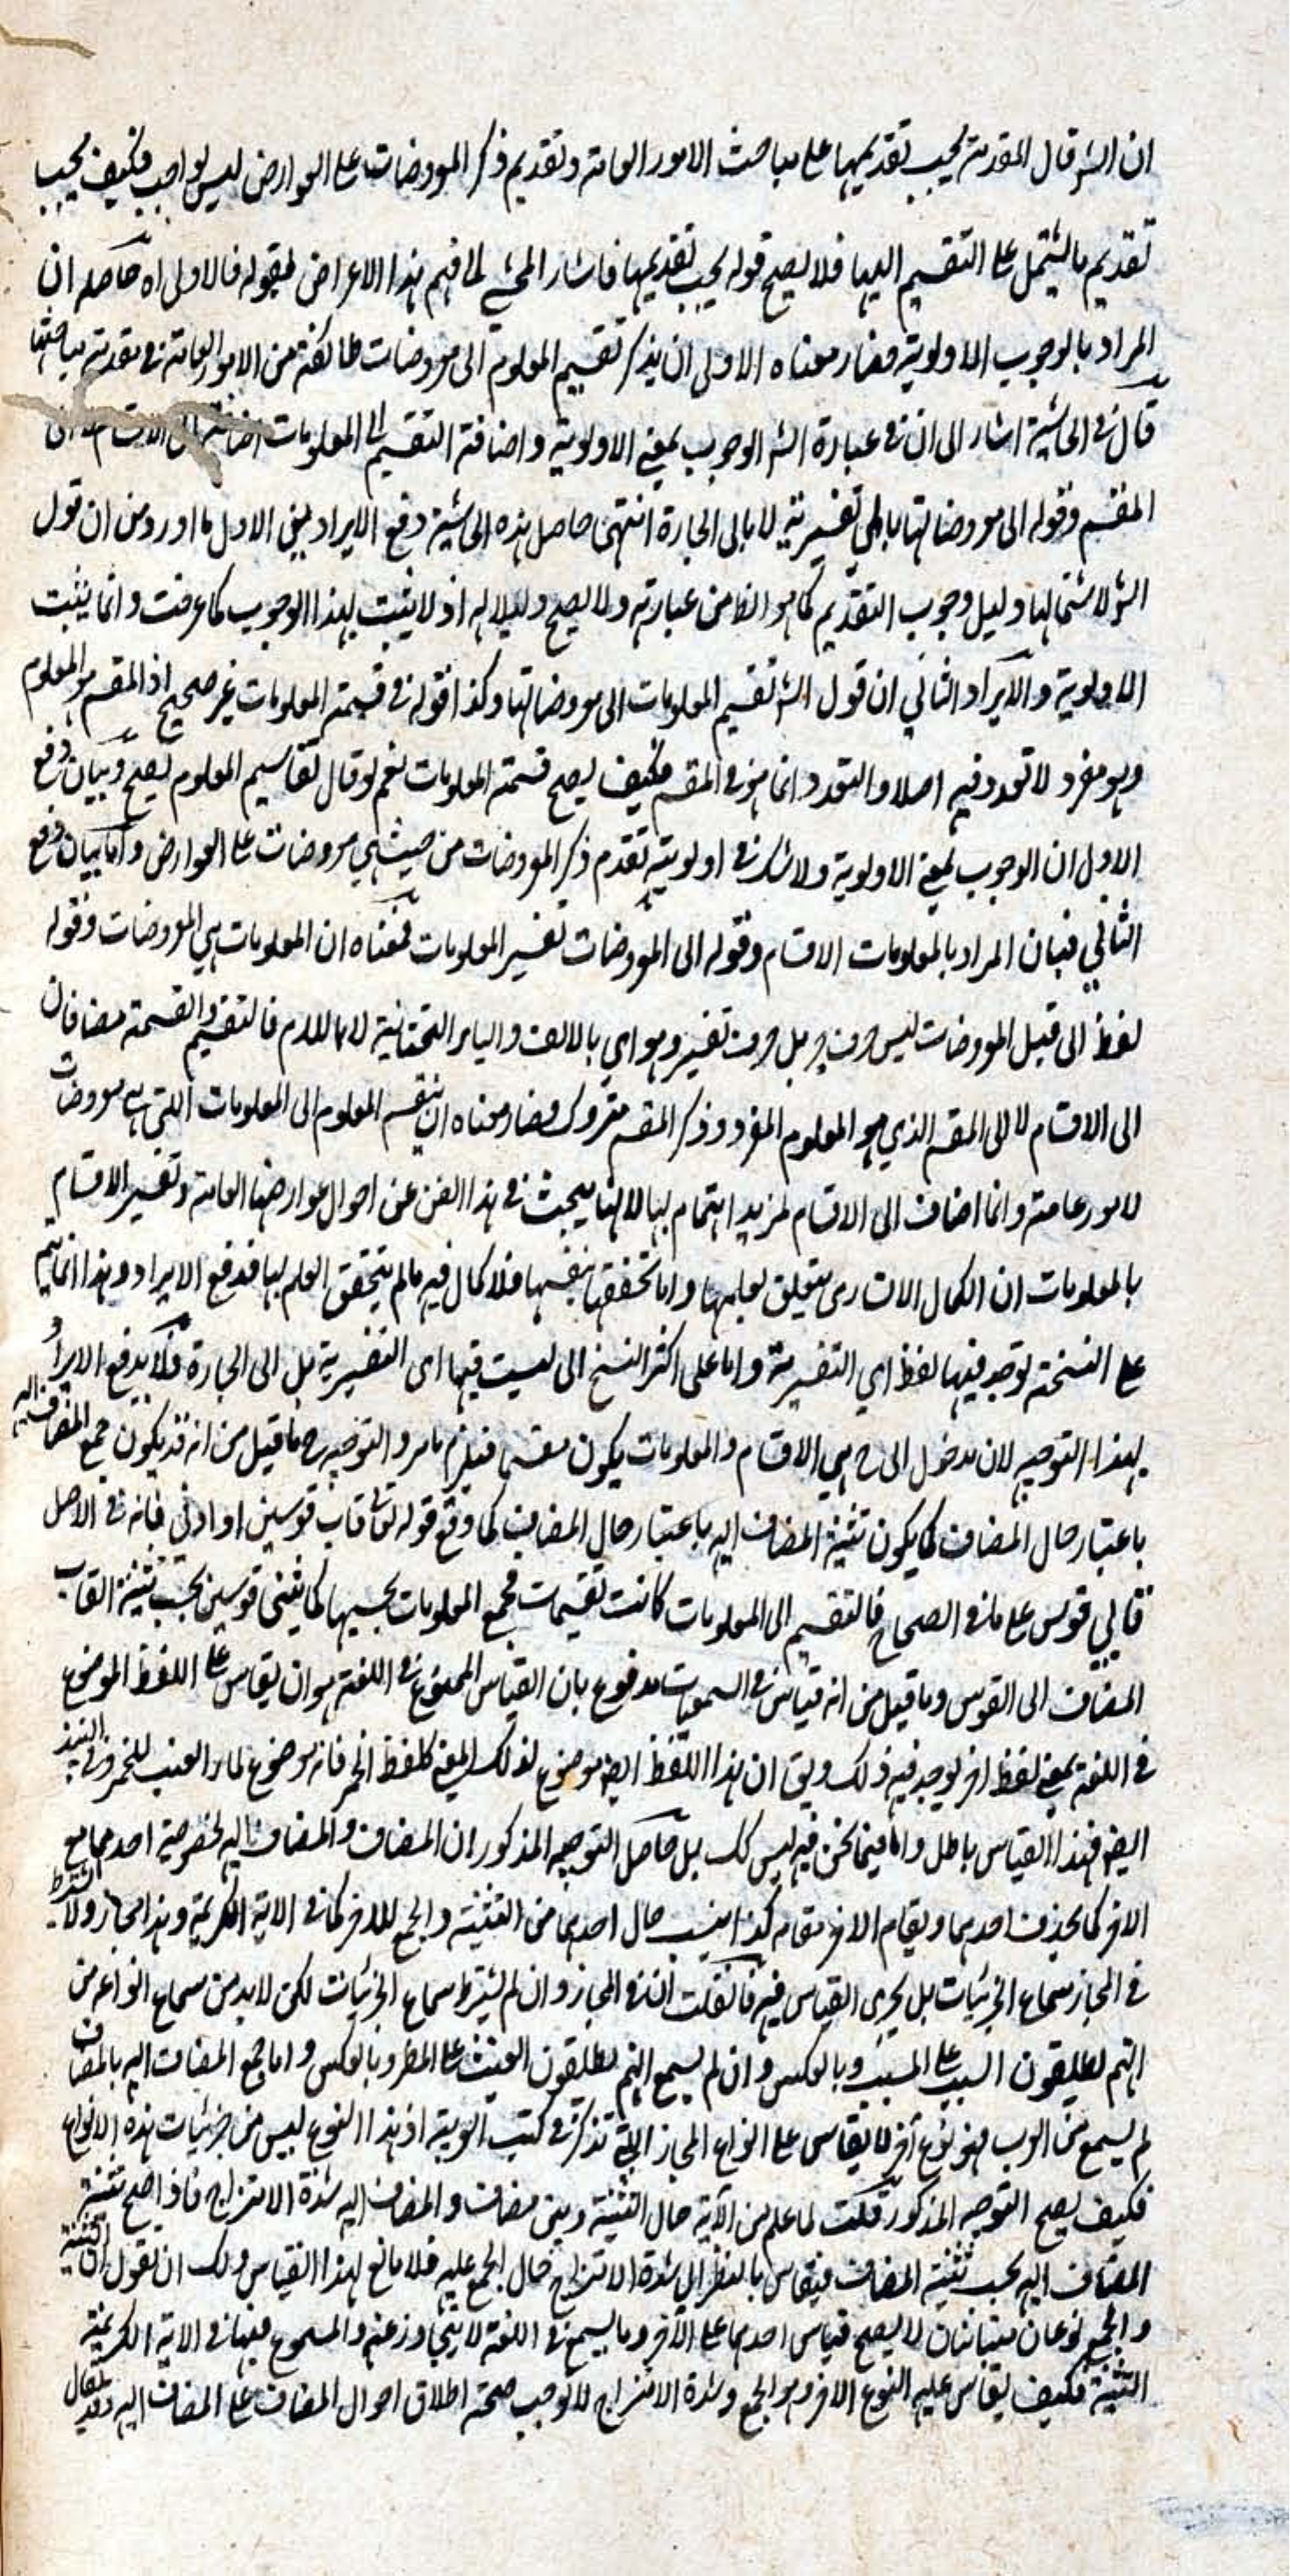 ان الش قال المقدمة يجب تقديمها على مباحث الامور العامة وتقديم ذكر المعروضات على العوارض ليس بواجب فكيف يجب
تقديم ما يشتمل على التقسيم اليها فلا يصح قوله يجب تقديمها فاشار المحشي لما فهم هذا الاعراض بقوله فالاولى اه حاصله ان
المراد بالوجوب الاولوية فصار معناه الاولى ان يذكر تقسيم المعلوم الى معروضات طائفة من الامور العامة في مقدمة مباحثها
قال في الحاشية اشار الى ان في عبارة الش الوجوب بمعنى الاولوية واضافة التقسيم الى المعلومات اضافة الى الاقسام لا الى
المقسم وقوله الى معروضاتها باي تفسيرية لا بالى الجارة انتهى حاصل هذه الحاشية دفع الايرادين الاول ما اورد من ان قول
الش لاشتمالها دليل وجوب التقديم كما هو الظ من عبارته ولا يصح دليلا له اذ لا يثبت بهذا الوجوب كما عرفت وانما يثبت
الاولوية والايراد الثاني ان قول الش تقسيم المعلومات الى معروضاتها وكذا قوله في قسمة المعلومات غير صحيح اذ المقسم هو المعلوم
وهو مفرد لا تعدد فيه اصلا والتعدد انما هو في المقسم فكيف يصح قسمة المعلومات نعم لو قال تقاسيم المعلوم يصح وبيان دفع
الاول ان الوجوب بمعنى الاولوية ولا شك في اولوية تقدم ذكر المعروضات من حيث هي معروضات على العوارض واما بيان دفع
الثاني فبان المراد بالمعلومات الاقسام وقوله الى المعروضات تفسير المعلومات فمعناه ان المعلومات هي المعروضات وقوله
لفظ الى قبل المعروضات ليس حرف جر بل حرف تفسير وهو اي بالالف والياء التحتانية لا باللام فالتقسيم والقسمة مضافان
الى الاقسام لا الى المقسم الذي هو المعلوم المفرد وذكر المقسم متروك فصار معناه ان ينقسم المعلوم الى المعلومات اللتي هي معروضات
لامور عامة وانما اضاف الى الاقسام لمزيد اهتمام بها لانها يبحث في هذا الفن عن احوال عوارضها العامة وتفسير الاقسام
بالمعلومات ان الكمال الانساري يتعلق بعلمها واما تحققها بنفسها فلا كمال فيه ما لم يتحقق العلم بها فدفع الايراد وهذا انما يتم
على النسخة توجد فيها لفظ اي التفسيرية واما على اكثر النسخ التي ليست فيها اى التفسيرية بل الى الجارة فلا يدفع الايراد
بهذا التوجيه لان مدخول الى ح هي الاقسام والمعلومات يكون مقسما فيلزم ما مر والتوجيه ح ما قيل من انه قد يكون جمع المضاف اليه
باعتبار حال المضاف كما يكون تثنية المضاف اليه باعتبار حال المضاف كما وقع قوله تعالى قاب قوسين او ادنى فانه في الاصل
قابي قوس على ما في الصحاح فالتقسيم الى المعلومات كانت تقسيمات فجمع المعلومات بحسبها كما يثنى قوسين بحسب تثنية القاب
المضاف الى القوس وما قيل من انه قياس في السمعيات مدفوع بان القياس الممنوع في اللغة هو ان يقاس على اللفظ الموضوع
في اللغة بمعنى لفظ اخر يوجد فيه ذلك ويق ان هذا اللفظ ايضا موضوع لذلك المعنى كلفظ الخمر فانه موضوع لماء العنب للخمر وفي النبيذ
ايضا فهذا القياس باطل واما فيما نحن فيه ليس كك بل حاصل التوجيه المذكور ان المضاف والمضاف اليه لخصوصية احدهما مع
الاخر كما يحذف احدهما ويقام الاخر مقامه كذا ينسب حال احدهما من التثنية والجمع للاخر كما في الاية الكريمة وهذا مجاز ولا يشترط
في المجاز سماع الجزئيات بل يجرى القياس فيه فان قلت ان في المجاز وان لم يشترط سماع الجزئيات لكن لا بد من سماع انواعه من
انهم يطلقون السبب على المسبب وبالعكس وان لم يسمع انهم يطلقون الغيث على المطر وبالعكس واما جمع المضاف اليه بالمضاف
لم يسمع من العرب فهو نوع آخر لا يقاس على انواع المجاز التي تذكر في كتب العربية اذ هذا النوع ليس من جزئيات هذه الانواع
فكيف يصح التوجيه المذكور قلت لما علم من الآية حال التثنية وبين مضاف والمضاف اليه شدة الامتزاج فاذا صح تثنية
المضاف اليه بحسب تثنية المضاف فيقاس بالنظر الى شدة الامتزاج حال الجمع عليه فلا مانع لهذا القياس ولك ان تقول ان التثنية
والجمع نوعان متباينان لا يصح قياس احدهما على الآخر وما يسمع في اللغة لا يتجاوز عنه والمسموع فيها في الاية الكريمة
التثنية فكيف يقاس عليه النوع الاخر وهو الجمع وشدة الامتزاج لا توجب صحة اطلاق احوال المضاف على المضاف اليه وقد يقال